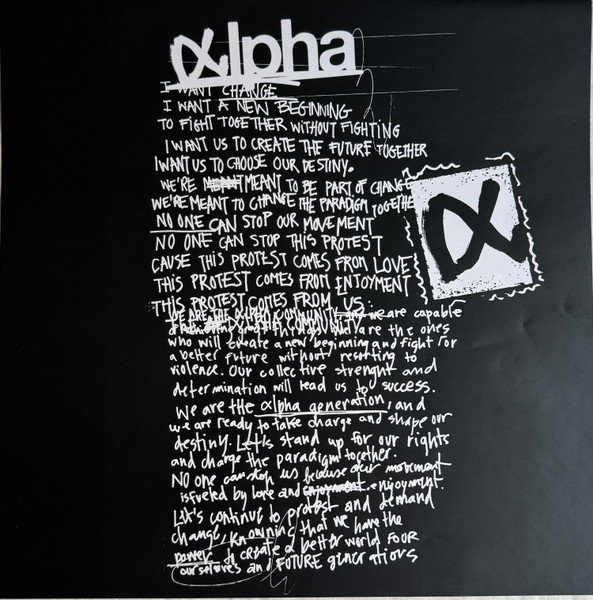 αlpha
I WANT CHANGE
I WANT A NEW BEGINNING
TO FIGHT TOGETHER WITHOUT FIGHTING
I WANT US TO CREATE THE FUTURE TOGETHER
I WANT US TO CHOOSE OUR DESTINY.
WE'RE MEANT TO BE PART OF CHANGE
WE'RE MEANT TO CHANGE THE PARADIGM TOGETHE
NO ONE CAN STOP OUR MOVEMENT
NO ONE CAN STOP THIS PROTEST
CAUSE THIS PROTEST COMES FROM LOVE
THIS PROTEST COMES FROM ENJOYMENT
THIS PROTEST COMES FROM US.
WE ARE THE αLPHA COMMUNITY we are capable
great things are the ones
who will create a new beginning and fight for
a better future without resorting to
violence. Our collective strenght and
determination will lead us to success.
We are the αlpha generation, and
we are ready to take charge and shape our
destiny. Let's stand up for our rights
and change the paradigm together.
NO one can stop us because our movement
is fueled by love and enjoyment. enjoyment.
Let's continue to protest and demand
change, knowing that we have the
power to create a better world FOUR
ourselves and FUTURE generations
α